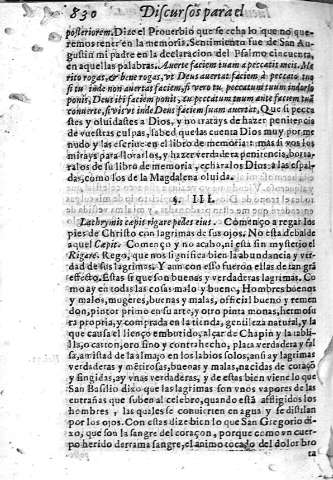 830 Discursos para el
posteriorem. Dize el Prouerbio que se echa lo que no que
remos tener en la memoria. Sentimiento fue de San Augus
tin mi padre en la declaracion del Psalmo cincuenta,
en aquellas palabras. Auerte faciem tuam a peccatis meis. Me
rito rogas, & bene rogas, vt Deus auertat faciem à peccato tuo
si tu inde non auertas faciem, si vero tu peccatum tuum in dorso
ponis, Deus ibi faciem ponit, tu peccatum tuum ante faciem tuã
conuerte, si vis vt inde Deus faciem suam auertat, Que si pecca
stes y oluidastes a Dios, y no tratays de hazer penitencia
de vuestras culpas, sabed que las cuenta Dios muy por me
nudo y las escriue en el libro de memoria: mas si vos los
mirays para llorarlos, y hazer verdadera penitencia, borra
ralos de su libro de memoria, echaralos Dios a las espal
das, como los de la Magdalena oluida.
§. III.
Lachrymis cœpit rigare pedes eius. Començo a regar los
pies de Christo con lagrimas de sus ojos. No esta debalde
aquel Cœpit. Començo y no acabo, ni està sin mysterio el
Rigare. Rego, que nos significa bien la abundancia y ver
dad de sus lagrimas. Y aun con esso fueron ellas de tan grã
effecto. Estas si que son buenas y verdaderas lagrimas. Co
mo ay en todas las cosas malo y bueno, Hombres buenos
y malos, mugeres, buenas y malas, official bueno y remen
don, pintor primo en su arte, y otro pinta monas, hermosu
ra propia, y comprada en la tienda, gentileza natural, y la
que causa el lienço embutido, alçar de Chapin y la tabli
lla, o carton, oro fino y contrahecho, plata verdadera y fal
sa, amistad de la alma, o en los labios solos, ansi ay lagrimas
verdaderas y mẽtirosas, buenas y malas, nacidas de coraçõ
y fingidas, ay vnas verdaderas, y de estas bien viene lo que
San Basilio dixo que las lagrimas son vnos vapores de las
entrañas que suben al celebro, quando està afligidos los
hombres, las quales se conuierten en agua y se distilan
por los ojos. Con estas dize bien lo que San Gregorio di
xo, que son la sangre del coraçon, porque como vn cuer
po herido derrama sangre, el animo tocado del dolor bro
ta